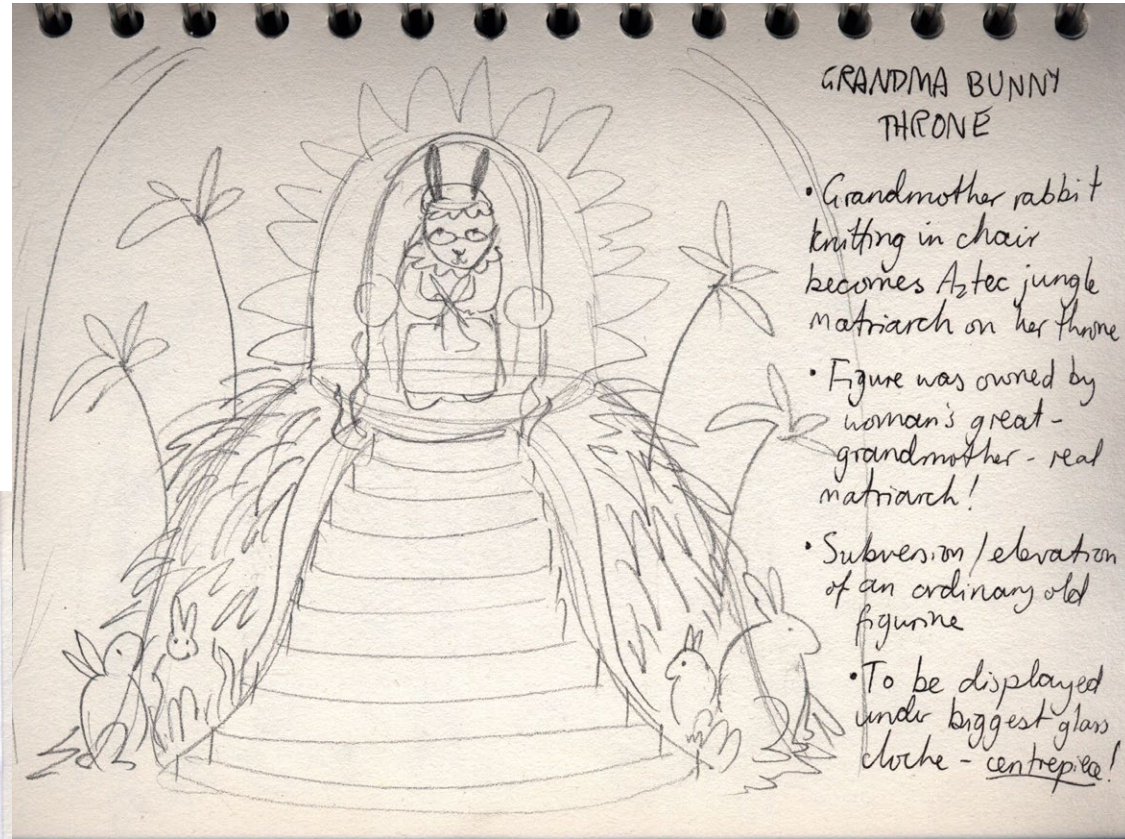 GRANDMA BUNNY
THRONE
• Grandmother rabbit
knitting in chair
becomes Aztec jungle
matriarch on her throne
• Figure was owned by
woman's great-
grandmother - real
matriarch!
• Subversion/elevation
of an ordinary old
figurine
• To be displayed
under biggest glass
cloche - centrepiece!